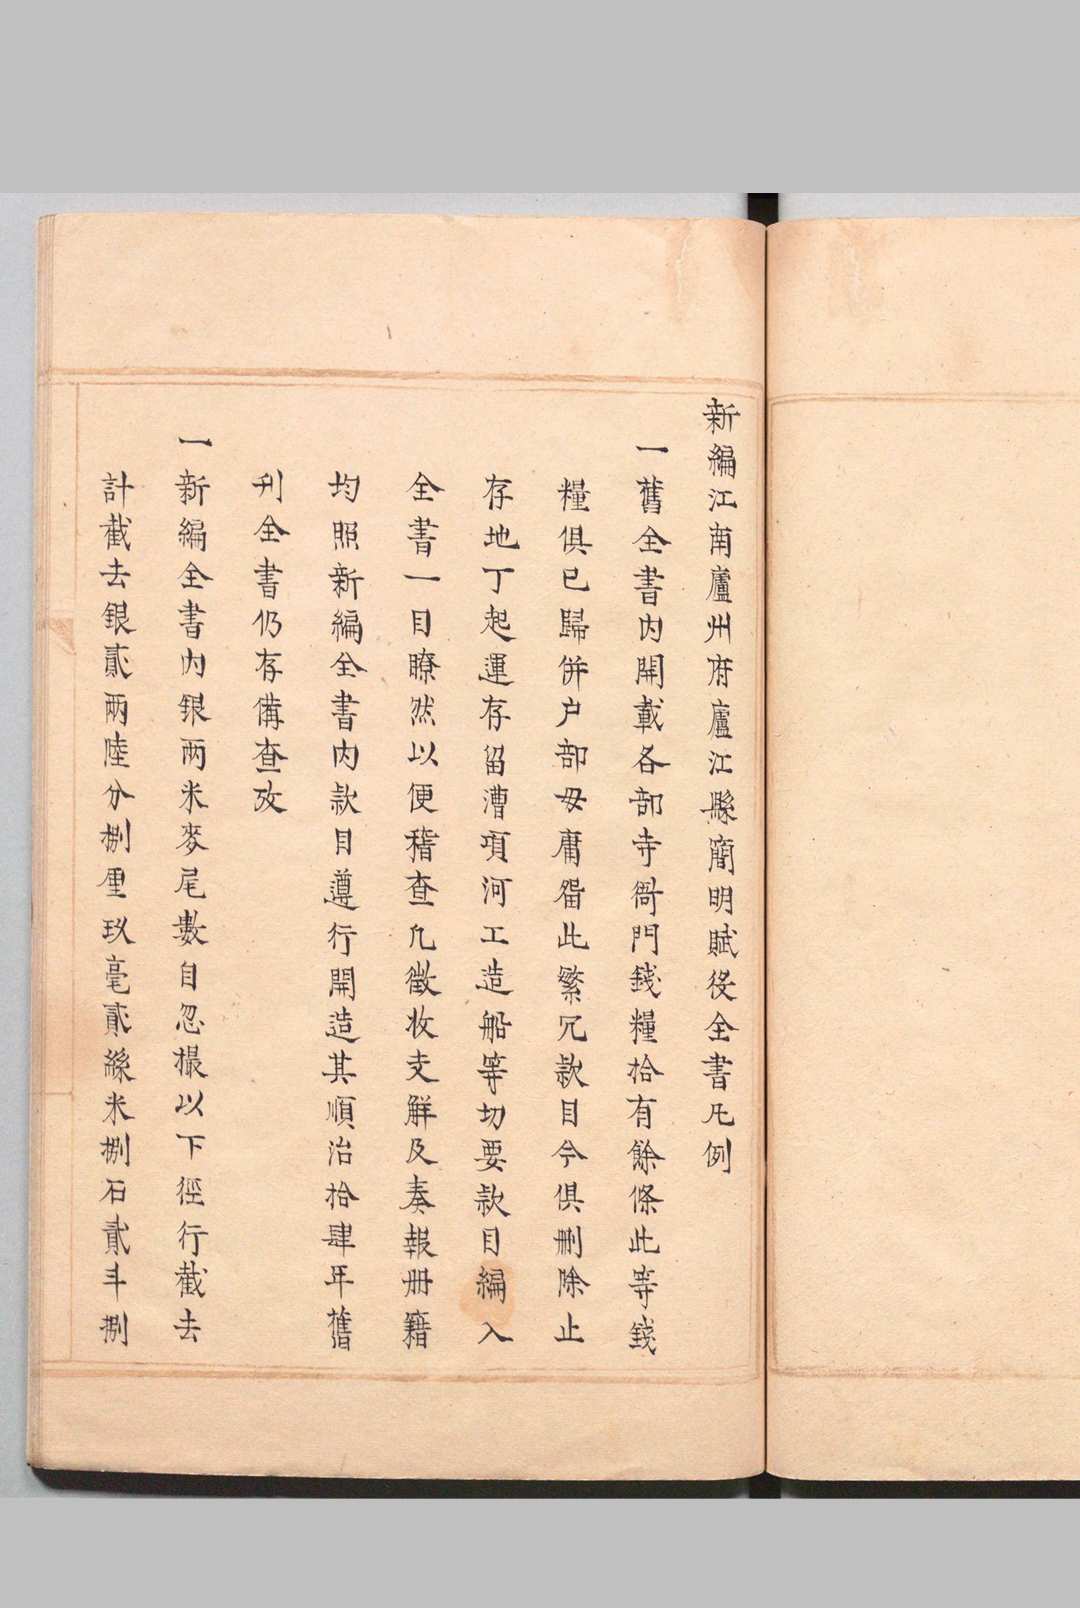 新編江南廬州府廬江縣簡明賦役全書凡例
一舊全書内開載各部寺衙門錢糧拾有餘條此等錢
糧俱已歸併户部毋庸留此繁冗款目今俱删除止
存地丁起運存留漕項河工造船等切要款目編入
全書一目瞭然以便稽查凡徵收支解及奏報册籍
均照新編全書内款目遵行開造其順治拾肆年舊
刋全書仍存備查攷
一新編全書内銀兩米麥尾數自忽撮以下徑行截去
計截去銀貳兩陸分捌厘玖毫貳絲米捌石貳斗捌